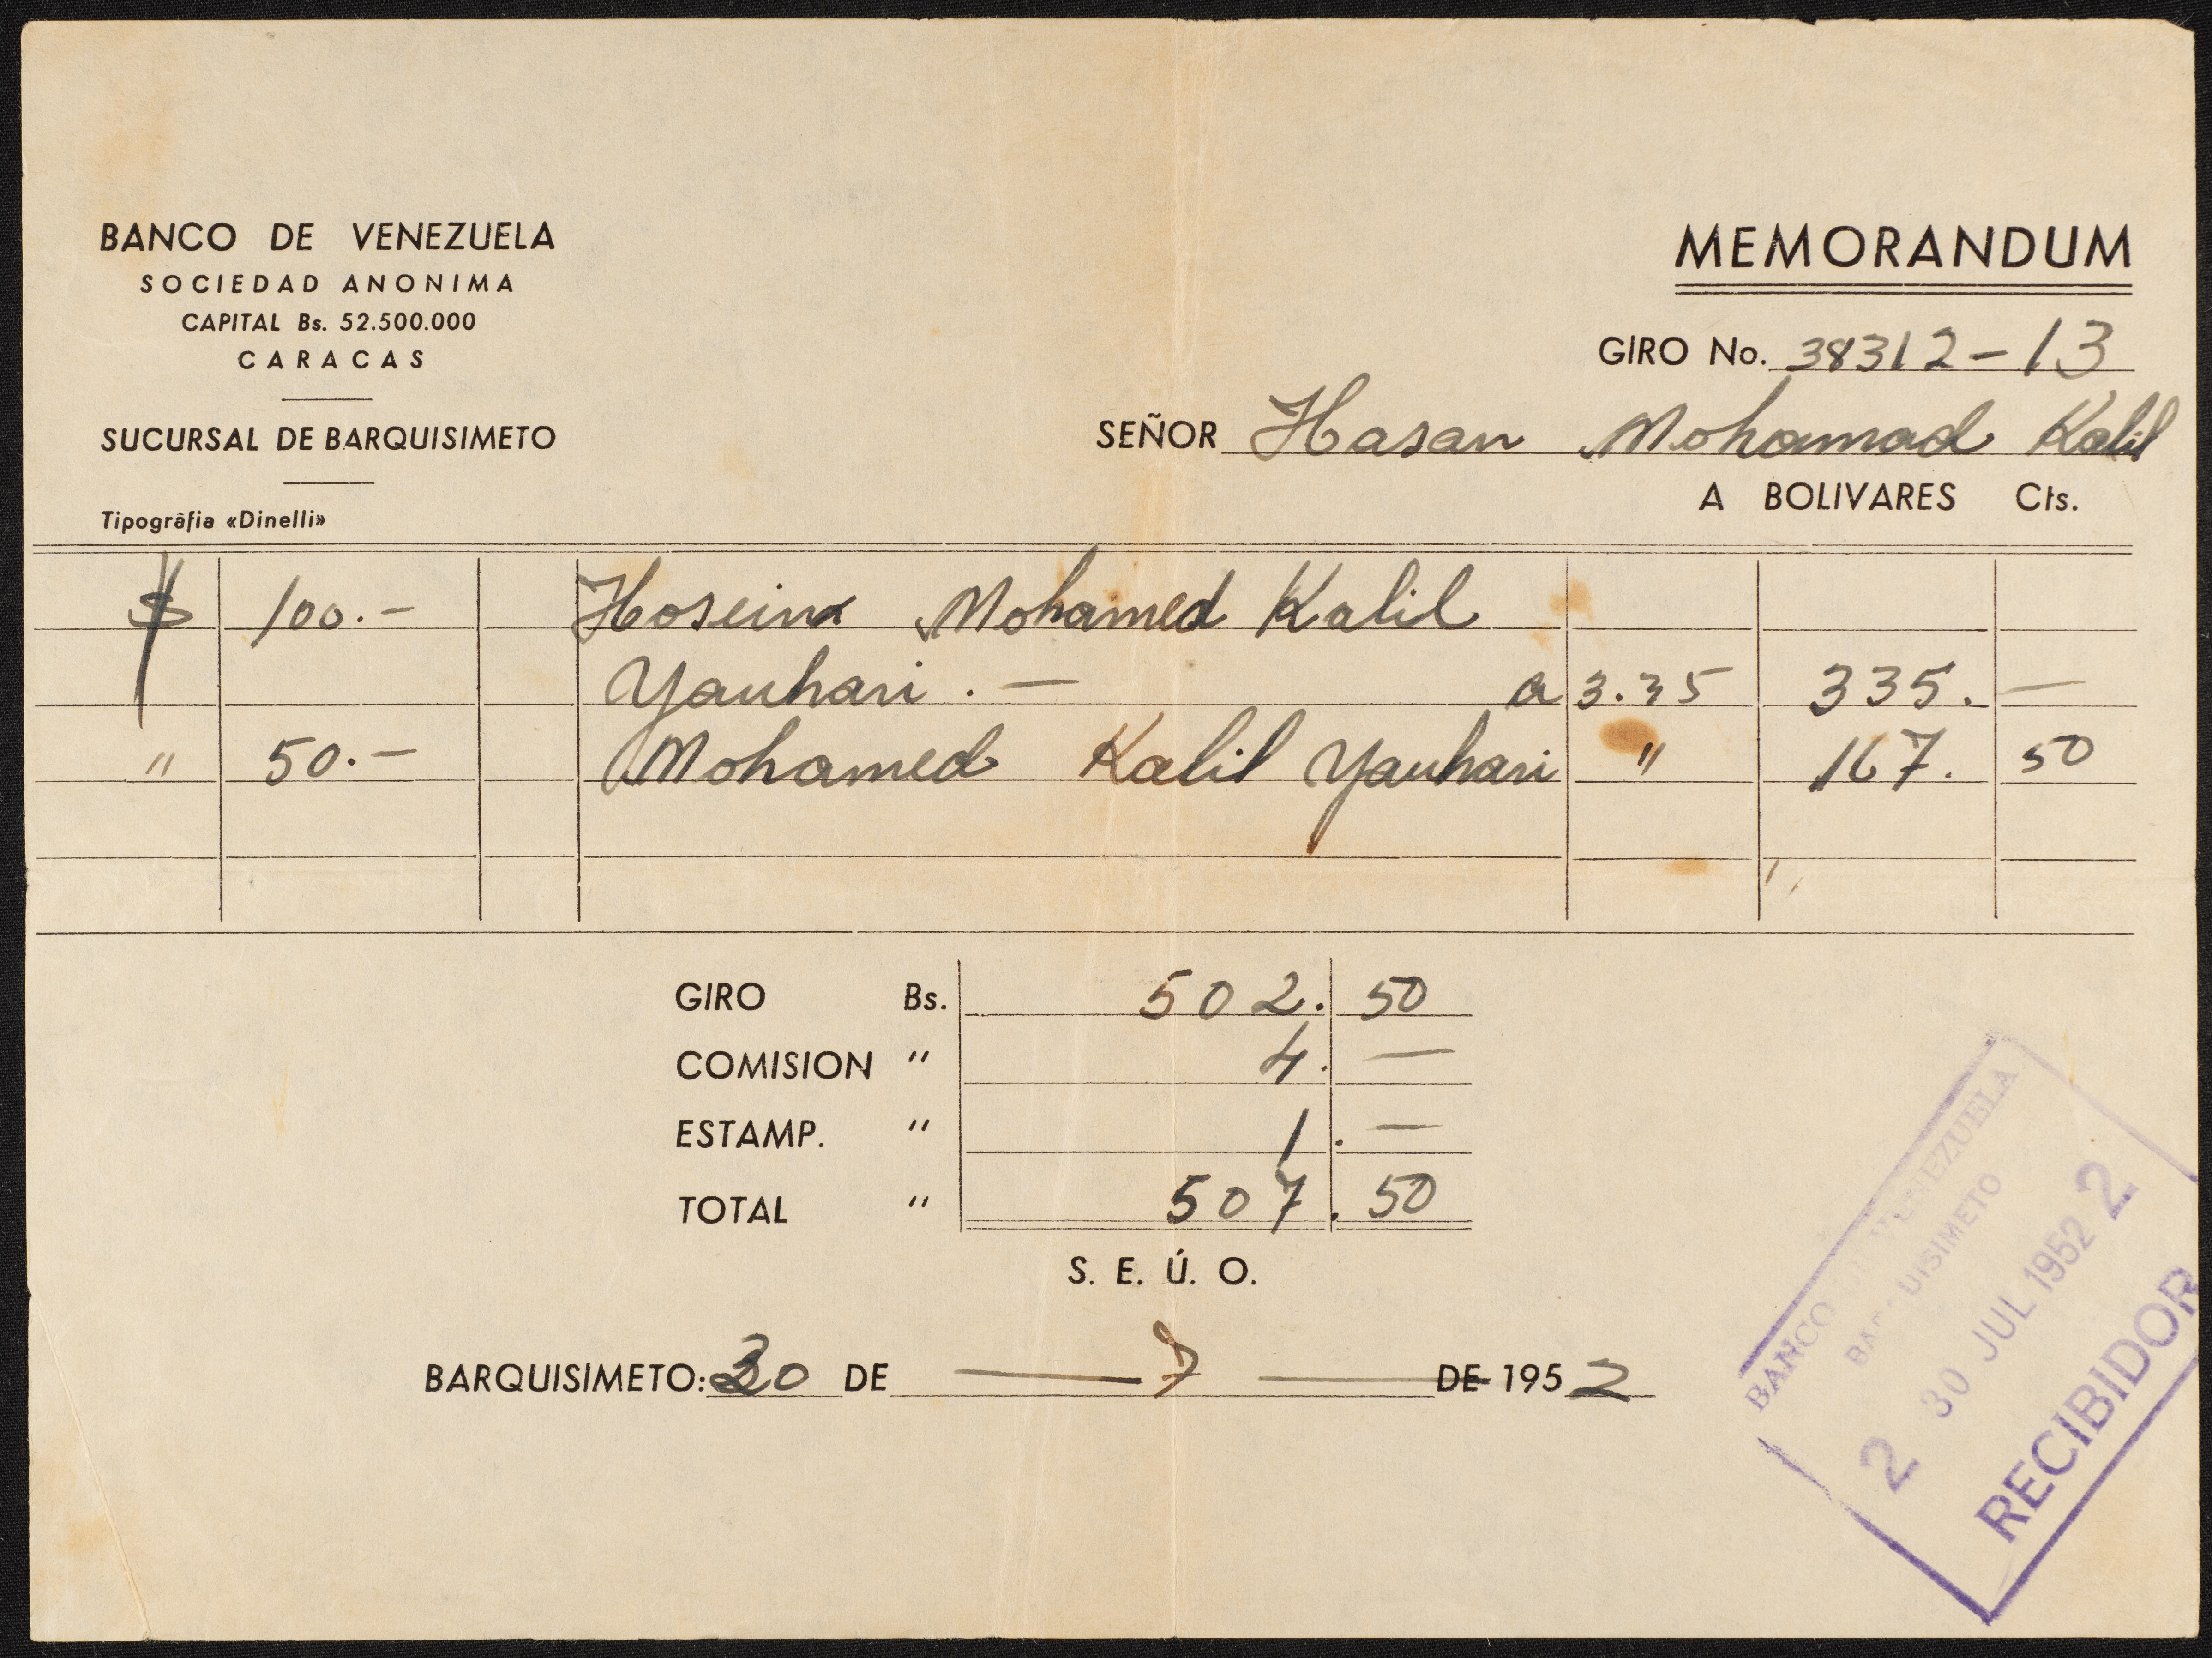 BANCO DE VENEZUELA
SOCIEDAD ANONIMA
CAPITAL Bs. 52.500.000
CARACAS
SUCURSAL DE BARQUISIMETO
Tipogrâfia «Dinelli»
MEMORANDUM
GIRO No. 38312-13
SEÑOR Hasan Mohamad Kalil
A BOLIVARES Cts.
$ 100.- Hosein Mohamed Kalil
Yauhari.- a 3.35 335. —
" 50.- Mohamed Kalil Yauhari " 167. 50
GIRO Bs. 502. 50
COMISION " 4. —
ESTAMP. " 1. —
TOTAL " 507. 50
S. E. Ú. O.
BARQUISIMETO: 30 DE — 7 — DE 1952
BANCO VENEZUELA
BAR UISIMETO
2 30 JUL 1952 2
RECIBIDOR